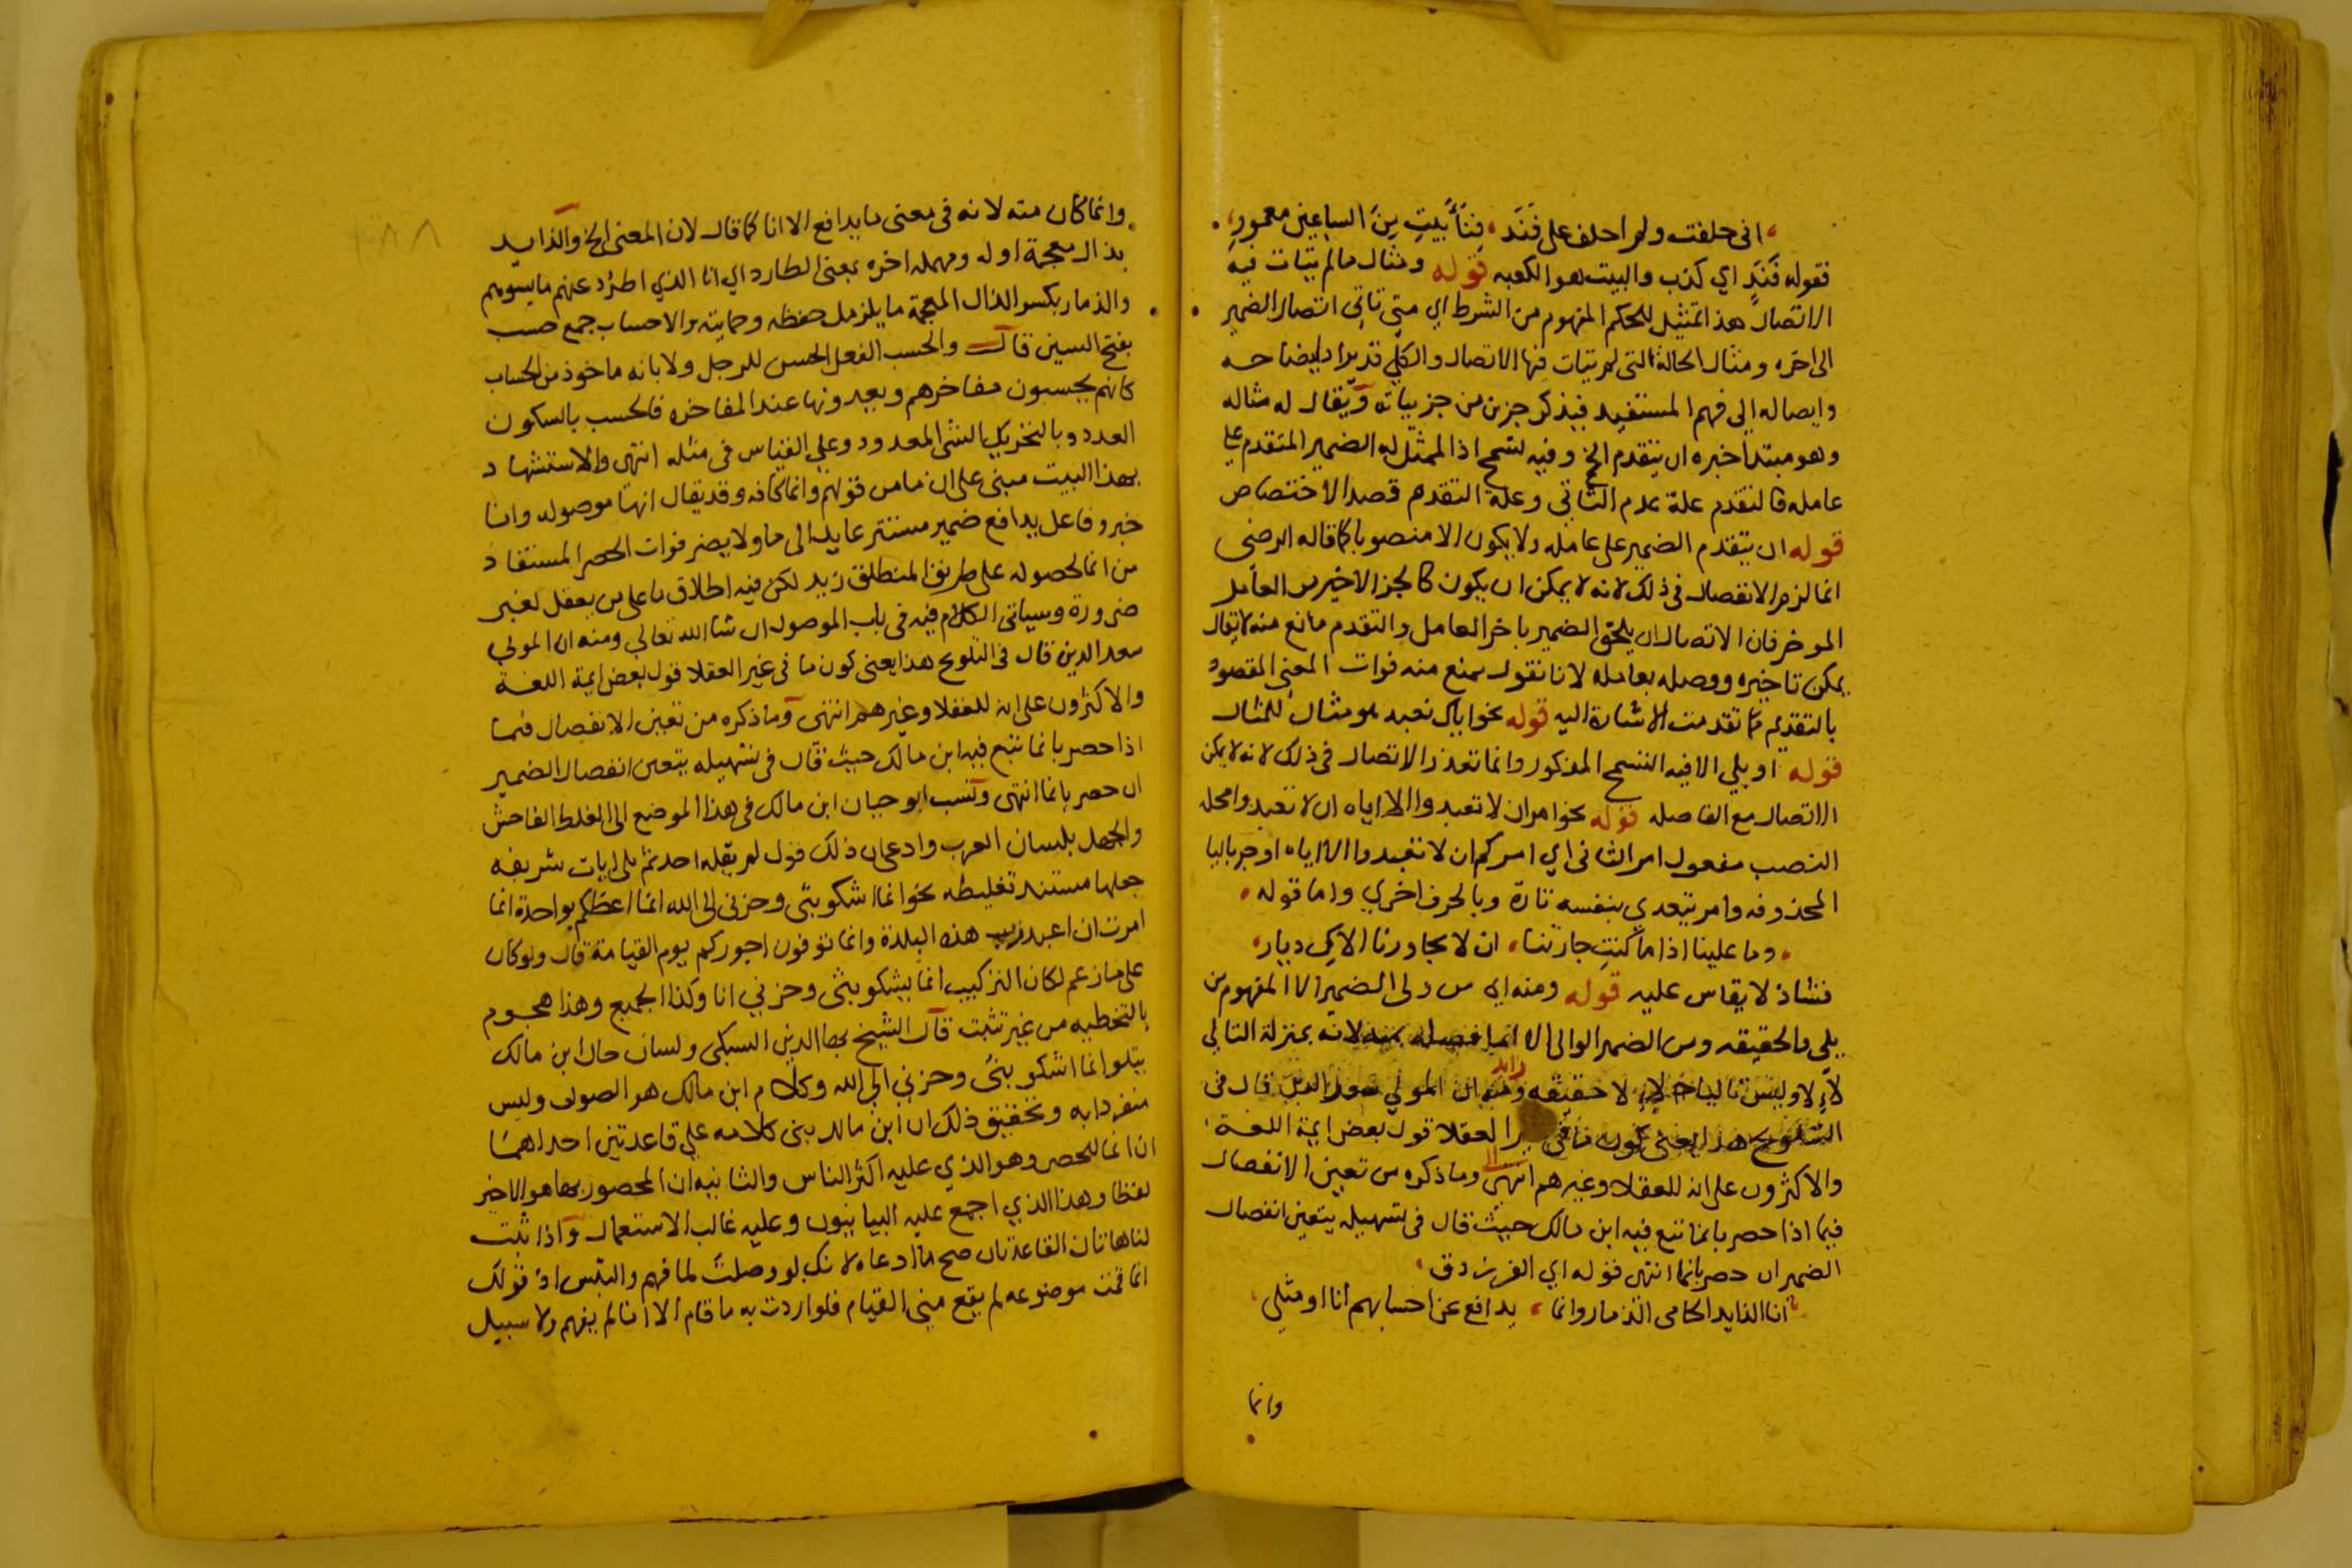 اني حلفت ولم احلف على فَنَد، فِنَأَ بَيتٍ مِنَ الساعين معمورِ،
فقوله فَنَدٍ اي كذب والبيت هو الكعبه قوله ومثال ما لم يتات فيه
الاتصال هذا تمثيل للحكم المفهوم من الشرط اي متى تاتى اتصال الضمير
الى اخره ومثال الحالة التي لم يتات فيها الاتصال والكلي قد يراد ايضاحه
وايصاله الى فهم المستفيد فيذكر جزئ من جزيياته ويقال له مثاله
وهو مبتدا خبره ان يتقدم الخ وفيه تسمح اذ الممثل له الضمير المتقدم على
عامله فالتقدم علة عدم التاتي وعلة التقدم قصد الاختصاص
قوله ان يتقدم الضمير على عامله ولا يكون الا منصوبا كما قاله الرضي
انما لزم الانفصال في ذلك لانه لا يمكن ان يكون كالجز الاخير من العامل
الموخر فان الاتصال ان يلحق الضمير باخر العامل والتقدم مانع منه لا يقال
يمكن تاخيره ووصله بعامله لانا نقول يمنع منه فوات المعنى المقصود
بالتقديم كما تقدمت الاشارة اليه قوله نحو اياك نعبد هو مثال للمثال
قوله او يلي الا فيه التسمح المذكور وانما تعذر الاتصال في ذلك لانه لا يمكن
الاتصال مع الفاصله قوله نحو امر ان لا تعبدوا الا اياه ان لا تعبدوا محله
النصب مفعول امر الثاني اي امركم ان لا تعبدوا الا اياه او جر بالبا
المحذوفه وامر يتعدي بنفسه تارة وبالحرف اخري واما قوله
وما علينا اذا ما كنتِ جارتنا، ان لا يجاورنا الاكِ ديار،
فشاذ لا يقاس عليه قوله ومنه اي من ولى الضمير الا المفهوم من
يلي والحقيقه ومن الضمير الوالى الا انما فصله بمنه لانه بمنزلة التالي
لاِ لا وليس تاليا لاِلا حقيقه ومنه ان المولي سعد الدين قال في
التلويح هذا يعني كون ما في غير العقلا قول بعض ايمة اللغة
والاكثرون على انه للعقلا وغيرهم انتهى الى وما ذكره من تعين الانفصال
فيما اذا حصر بانما تبع فيه ابن مالك حيث قال في تسهيله يتعين انفصال
الضمير ان حصر بانما انتهى قوله اي الفرزدق
انا الذايد الحامي الذمار وانما، يدافع عن احسابهم انا او مثلي
وانما
وانما كان منه لانه في معنى ما يدافع الا انا كما قال لان المعنى الخ والذايد
بذال معجمة اوله ومهمله اخره بمعنى الطارد اي انا الذي اطرُد عنهم ما يسوهم
والذمار بكسر الذال المعجمة ما يلزمك حفظه وحمايته والاحساب جمع حسب
بفتح السين قال والحسب الفعل الحسن للرجل ولابائه ماخوذ من الحساب
كانهم يحسبون مفاخرهم ويعدونها عند المفاخره فالحسب بالسكون
العدد وبالتحريك الشى المعدود وعلى القياس في مثله انتهى والاستشهاد
بهذا البيت مبني على ان ما من قولهم وانما كافه وقد يقال انها موصوله وانا
خبر وفاعل يدافع ضمير مستتر عايد الى ما ولا يضر فوات الحصر المستفاد
من انما لحصوله على طريق المنطلق زيد لكن فيه اطلاق ما على من يعقل لغير
ضرورة وسياتي الكلام فيه في باب الموصول ان شا الله تعالي ومنه ان المولي
سعد الدين قال في التلويح هذا يعني كون ما في غير العقلا قول بعض ايمة اللغة
والاكثرون على انه للعقلا وغيرهم انتهى وما ذكره من تعين الانفصال فيما
اذا حصر بانما تبع فيه ابن مالك حيث قال في تسهيله يتعين انفصال الضمير
ان حصر بانما انتهى ونسب ابو حيان ابن مالك في هذا الموضع الى الغلط الفاحش
والجهل بلسان العرب وادعى ان ذلك قول لم يقله احد ثم تلى ايات شريفه
جعلها مستند تغليطه نحو انما اشكو بثى وحزني الى الله انما اعظكم بواحدة انما
امرت ان اعبد رب هذه البلدة وانما توفون اجوركم يوم القيامة قال ولو كان
على ما زعم لكان التركيب انما يشكو بثى وحزني انا وكذا الجميع وهذا هجوم
بالتخطيه من غير تثبت قال الشيخ بها الدين السبكي ولسان حال ابن مالك
يتلو انما اشكو بثى وحزني الى الله وكلام ابن مالك هو الصواب وليس
منفردا به وتحقيق ذلك ان ابن مالك بنى كلامه علي قاعدتين احداهما
ان انما للحصر وهو الذي عليه اكثر الناس والثانيه ان المحصور بها هو الاخير
لفظا وهذا الذي اجمع عليه البيانيون وعليه غالب الاستعمال واذا ثبت
لنا هاتان القاعدتان صح ما ادعاه لانك لو وصلتَ لما فهم والتبس اذ قولك
انما قمت موضوعه لم يقع مني القيام فلو اردت به ما قام الا انا لم يفهم ولا سبيل